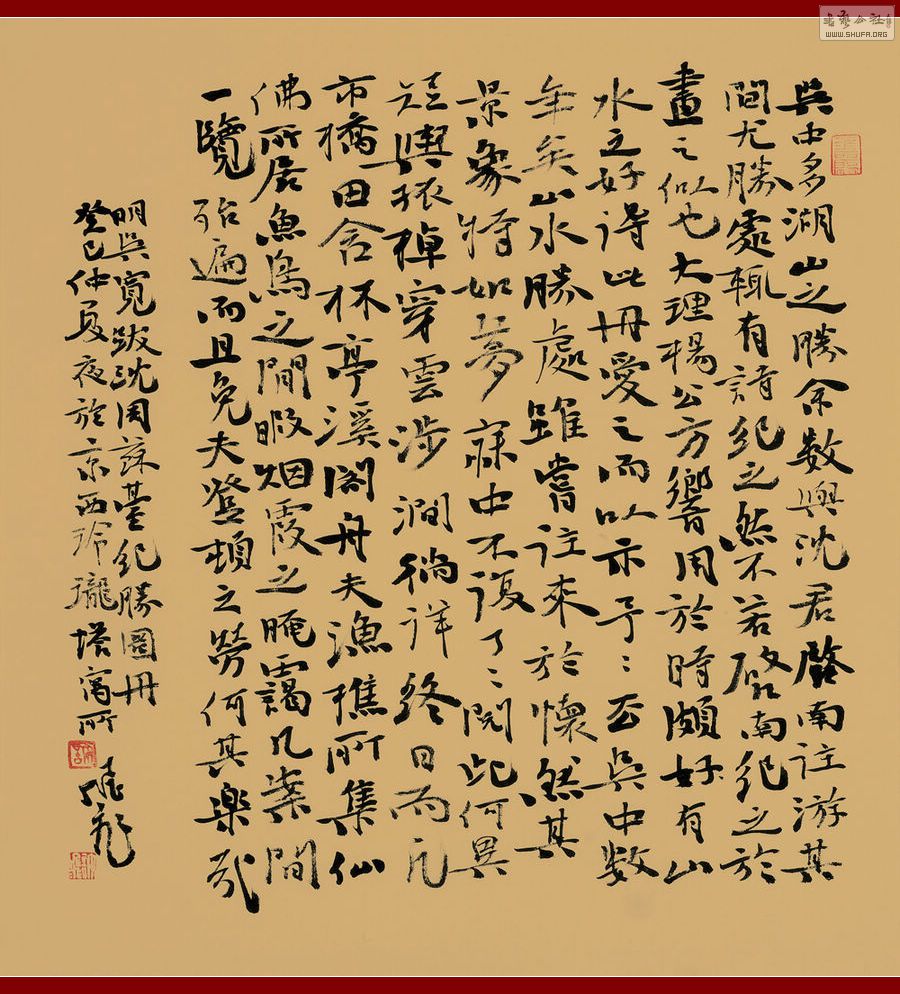 吳中多湖山之勝余數與沈君啟南往游其
間尤勝處輒有詩紀之然不若啟南紀之於
畫之似也大理楊公方嚮用於時頗好有山
水之好得此冊愛之而以示予〻去吳中數
年矣山水勝處雖嘗往來於懷然其
景象特如夢寐中不復了〻閱此何異
筵輿振棹穿雲涉澗徜徉終日而凡
市橋田舍林亭溪閣舟夫漁樵所集仙
佛所居魚鳥之閒暇烟霞之晻靄几案間
一覽殆遍而且免夫登頓之勞何其樂哉
明吳寬跋沈周蘇臺紀勝圖冊
癸巳仲夏夜於京西玲瓏塔寓所
WWW.SHUFA.ORG